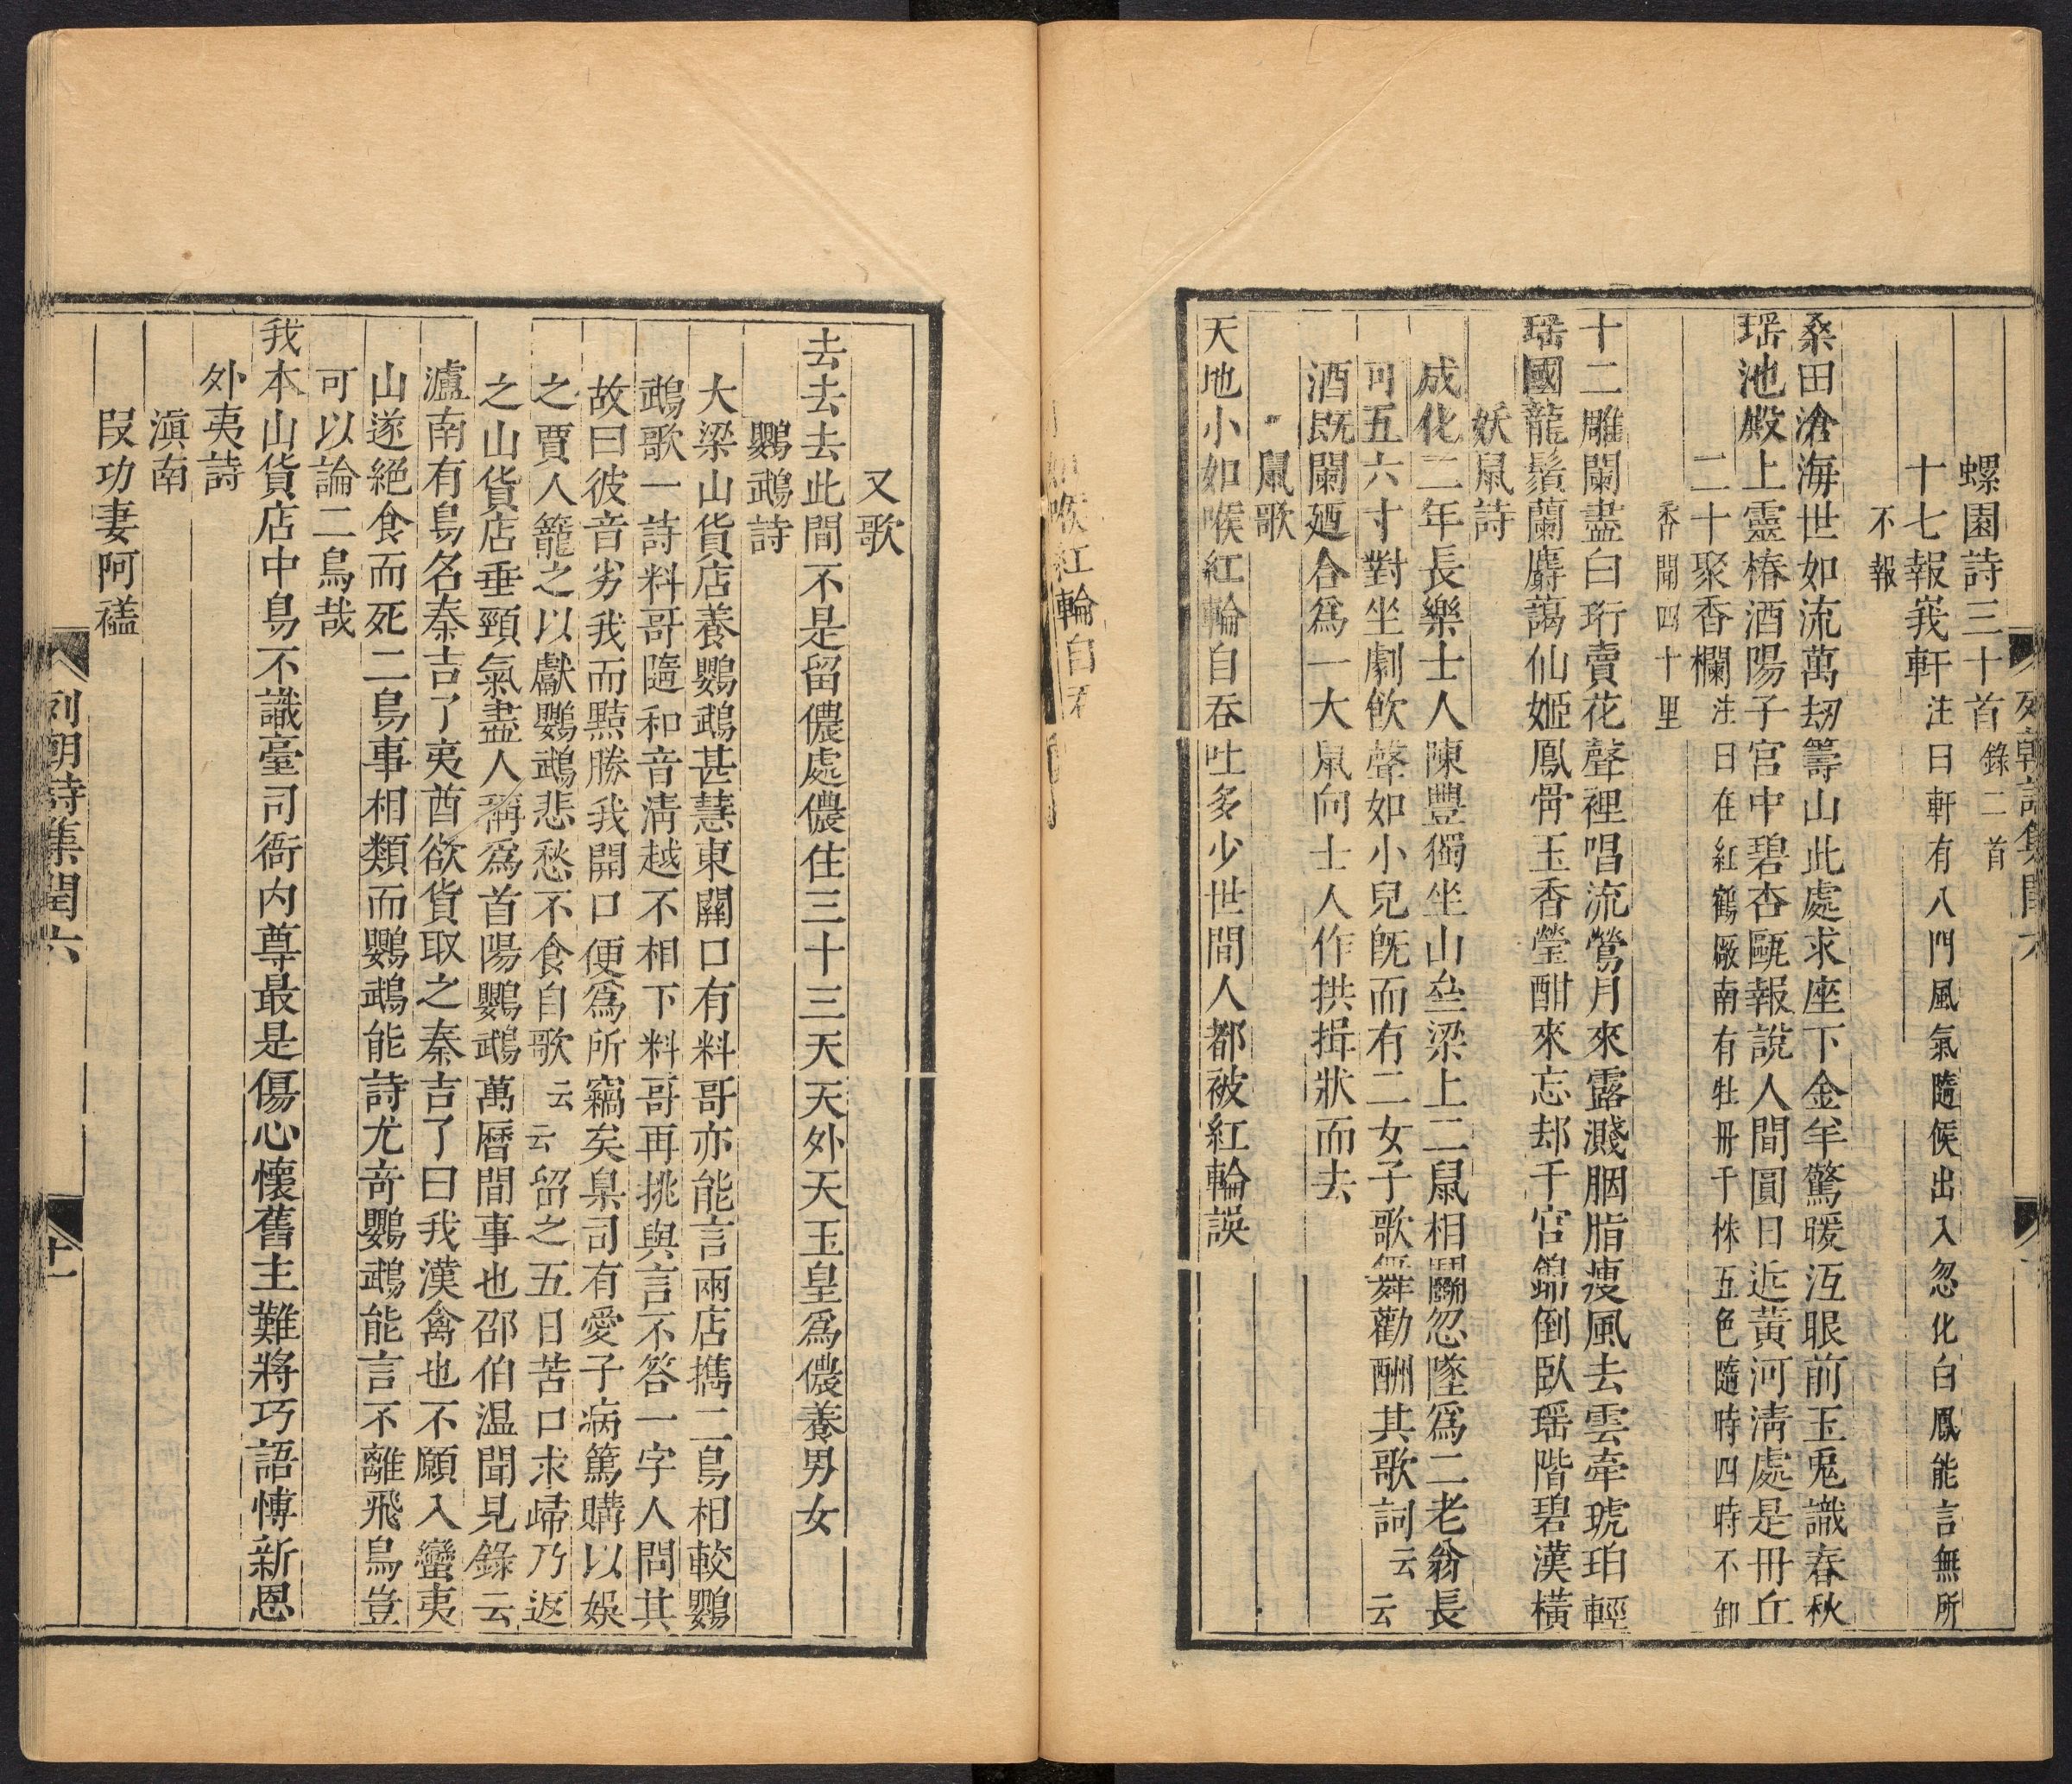 螺園詩三十首錄二首
十七報峩軒注曰軒有八門風氣隨候出入忽化白鳳能言無所
不報
桑田滄海世如流萬劫籌山此處求座下金羊驚暖沍眼前玉兎識春秋
瑶池殿上靈椿酒陽子宮中碧杏甌報說人間圓日近黃河淸處是冊丘
二十聚香欄注曰在紅鶴厰南有牡冊千株五色隨時四時不卸
香聞四十里
十二雕闌盡白珩賣花聲裡唱流鶯月來露濺胭脂痩風去雲牽琥珀輕
瑶國龍鬚蘭麝藹仙姬鳳骨玉香瑩酣來忘却千官錦倒臥瑶階碧漢橫
妖鼠詩
成化二年長樂士人陳豐獨坐山坐梁上二鼠相鬭忽墜爲二老翁長
可五六寸對坐劇飮聲如小兒旣而有二女子歌舞勸酬其歌詞云云
酒既闌廼合爲一大鼠向士人作拱揖狀而去
鼠歌
天地小如喉紅輪自吞吐多少世間人都被紅輪誤
列朝詩集閏六
喉紅輪自吞
又歌
去去去此間不是留儂處儂住三十三天天外天玉皇爲儂養男女
鸚鵡詩
大梁山貨店養鸚鵡甚慧東關口有料哥亦能言兩店擕二鳥相較鸚
鵡歌一詩料哥隨和音淸越不相下料哥再挑與言不答一字人問其
故曰彼音劣我而黠勝我開口便爲所竊矣臬司有愛子病篤購以娛
之賈人籠之以獻鸚鵡悲愁不食自歌云云留之五日苦口求歸乃返
之山貨店垂頸氣盡人稱爲首陽鸚鵡萬曆間事也邵伯温聞見錄云
瀘南有鳥名秦吉了夷酋欲貨取之秦吉了曰我漢禽也不願入蠻夷
山遂絕食而死二鳥事相類而鸚鵡能詩尤奇鸚鵡能言不離飛鳥豈
可以論二鳥哉
我本山貨店中鳥不識臺司衙內尊最是傷心懷舊主難將巧語博新恩
外夷詩
滇南
叚功妻阿𧝓
列朝詩集閏六
十一